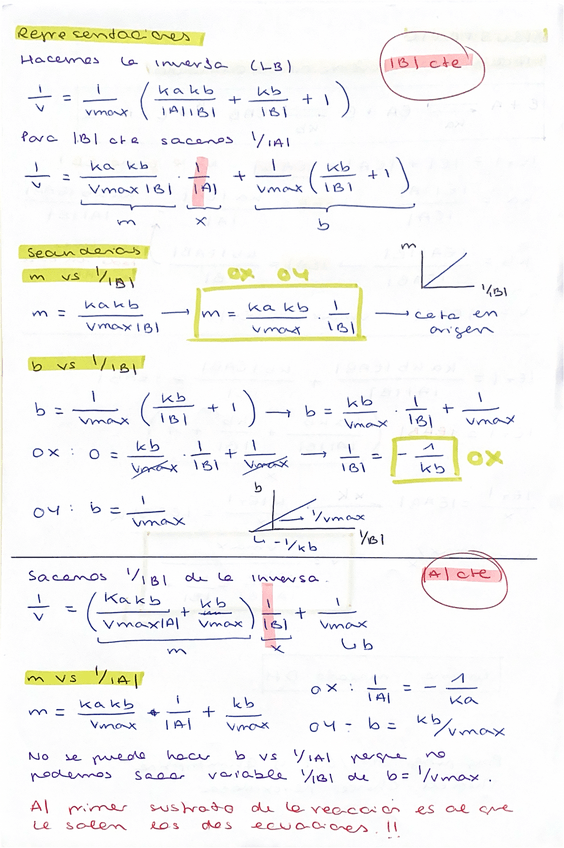 Representaciones
Hacemos la inversa (LB)
|B| cte
1/v = 1/vmax (ka kb/|A||B| + kb/|B| + 1)
Para |B| cte sacamos 1/|A|
1/v = ka kb/vmax |B| · 1/|A| + 1/vmax (kb/|B| + 1)
m x b
Secundarias
m vs 1/|B|
OX OY
m = ka kb/vmax |B| → m = ka kb/vmax · 1/|B| → cota en origen
m
1/|B|
b vs 1/|B|
b = 1/vmax (kb/|B| + 1) → b = kb/vmax · 1/|B| + 1/vmax
OX: 0 = kb/vmax · 1/|B| + 1/vmax → 1/|B| = - 1/kb OX
OY: b = 1/vmax
b
1/vmax
↳ -1/kb
1/|B|
Sacamos 1/|B| de la inversa.
|A| cte
1/v = (ka kb/vmax|A| + kb/vmax) 1/|B| + 1/vmax
m x ↳ b
m vs 1/|A|
m = ka kb/vmax · 1/|A| + kb/vmax
OX: 1/|A| = - 1/ka
OY = b = kb/vmax
No se puede hacer b vs 1/|A| porque no
podemos sacar variable 1/|B| de b = 1/vmax.
Al primer sustrato de la reacción es al que
le salen las dos ecuaciones.!!